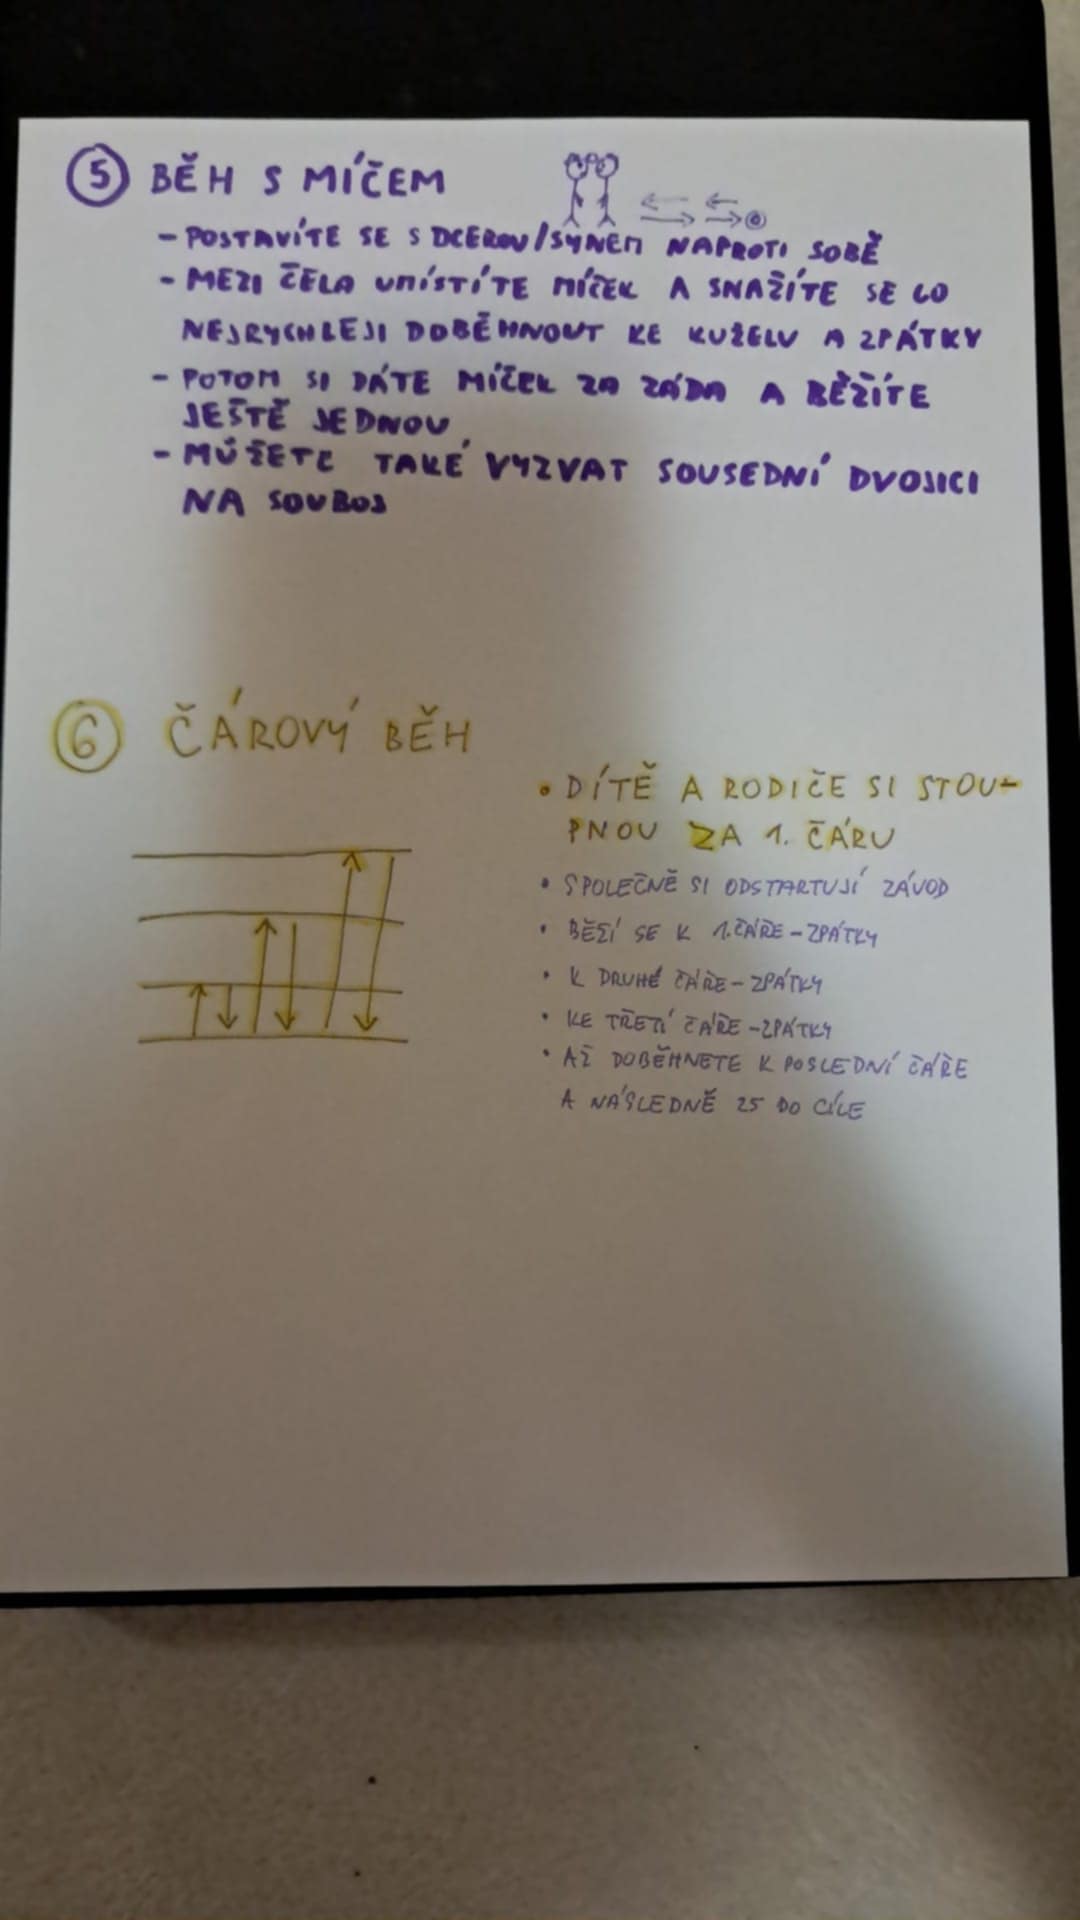 5 BĚH S MÍČEM
- POSTAVÍTE SE S DCEROU/SYNEM NAPROTI SOBĚ
- MEZI ČELA UMÍSTÍTE MÍČEK A SNAŽÍTE SE CO
NEJRYCHLEJI DOBĚHNOUT KE KUŽELU A ZPÁTKY
- POTOM SI DÁTE MÍČEK ZA ZÁDA A BĚŽÍTE
JEŠTĚ JEDNOU
- MŮŽETE TAKÉ VYZVAT SOUSEDNÍ DVOJICI
NA SOUBOJ
6 ČÁROVÝ BĚH
• DÍTĚ A RODIČE SI STOU-
PNOU ZA 1. ČÁRU
• SPOLEČNĚ SI ODSTARTUJÍ ZÁVOD
• BĚŽÍ SE K 1. ČÁŘE - ZPÁTKY
• K DRUHÉ ČÁŘE - ZPÁTKY
• KE TŘETÍ ČÁŘE - ZPÁTKY
• AŽ DOBĚHNETE K POSLEDNÍ ČÁŘE
A NÁSLEDNĚ DO CÍLE